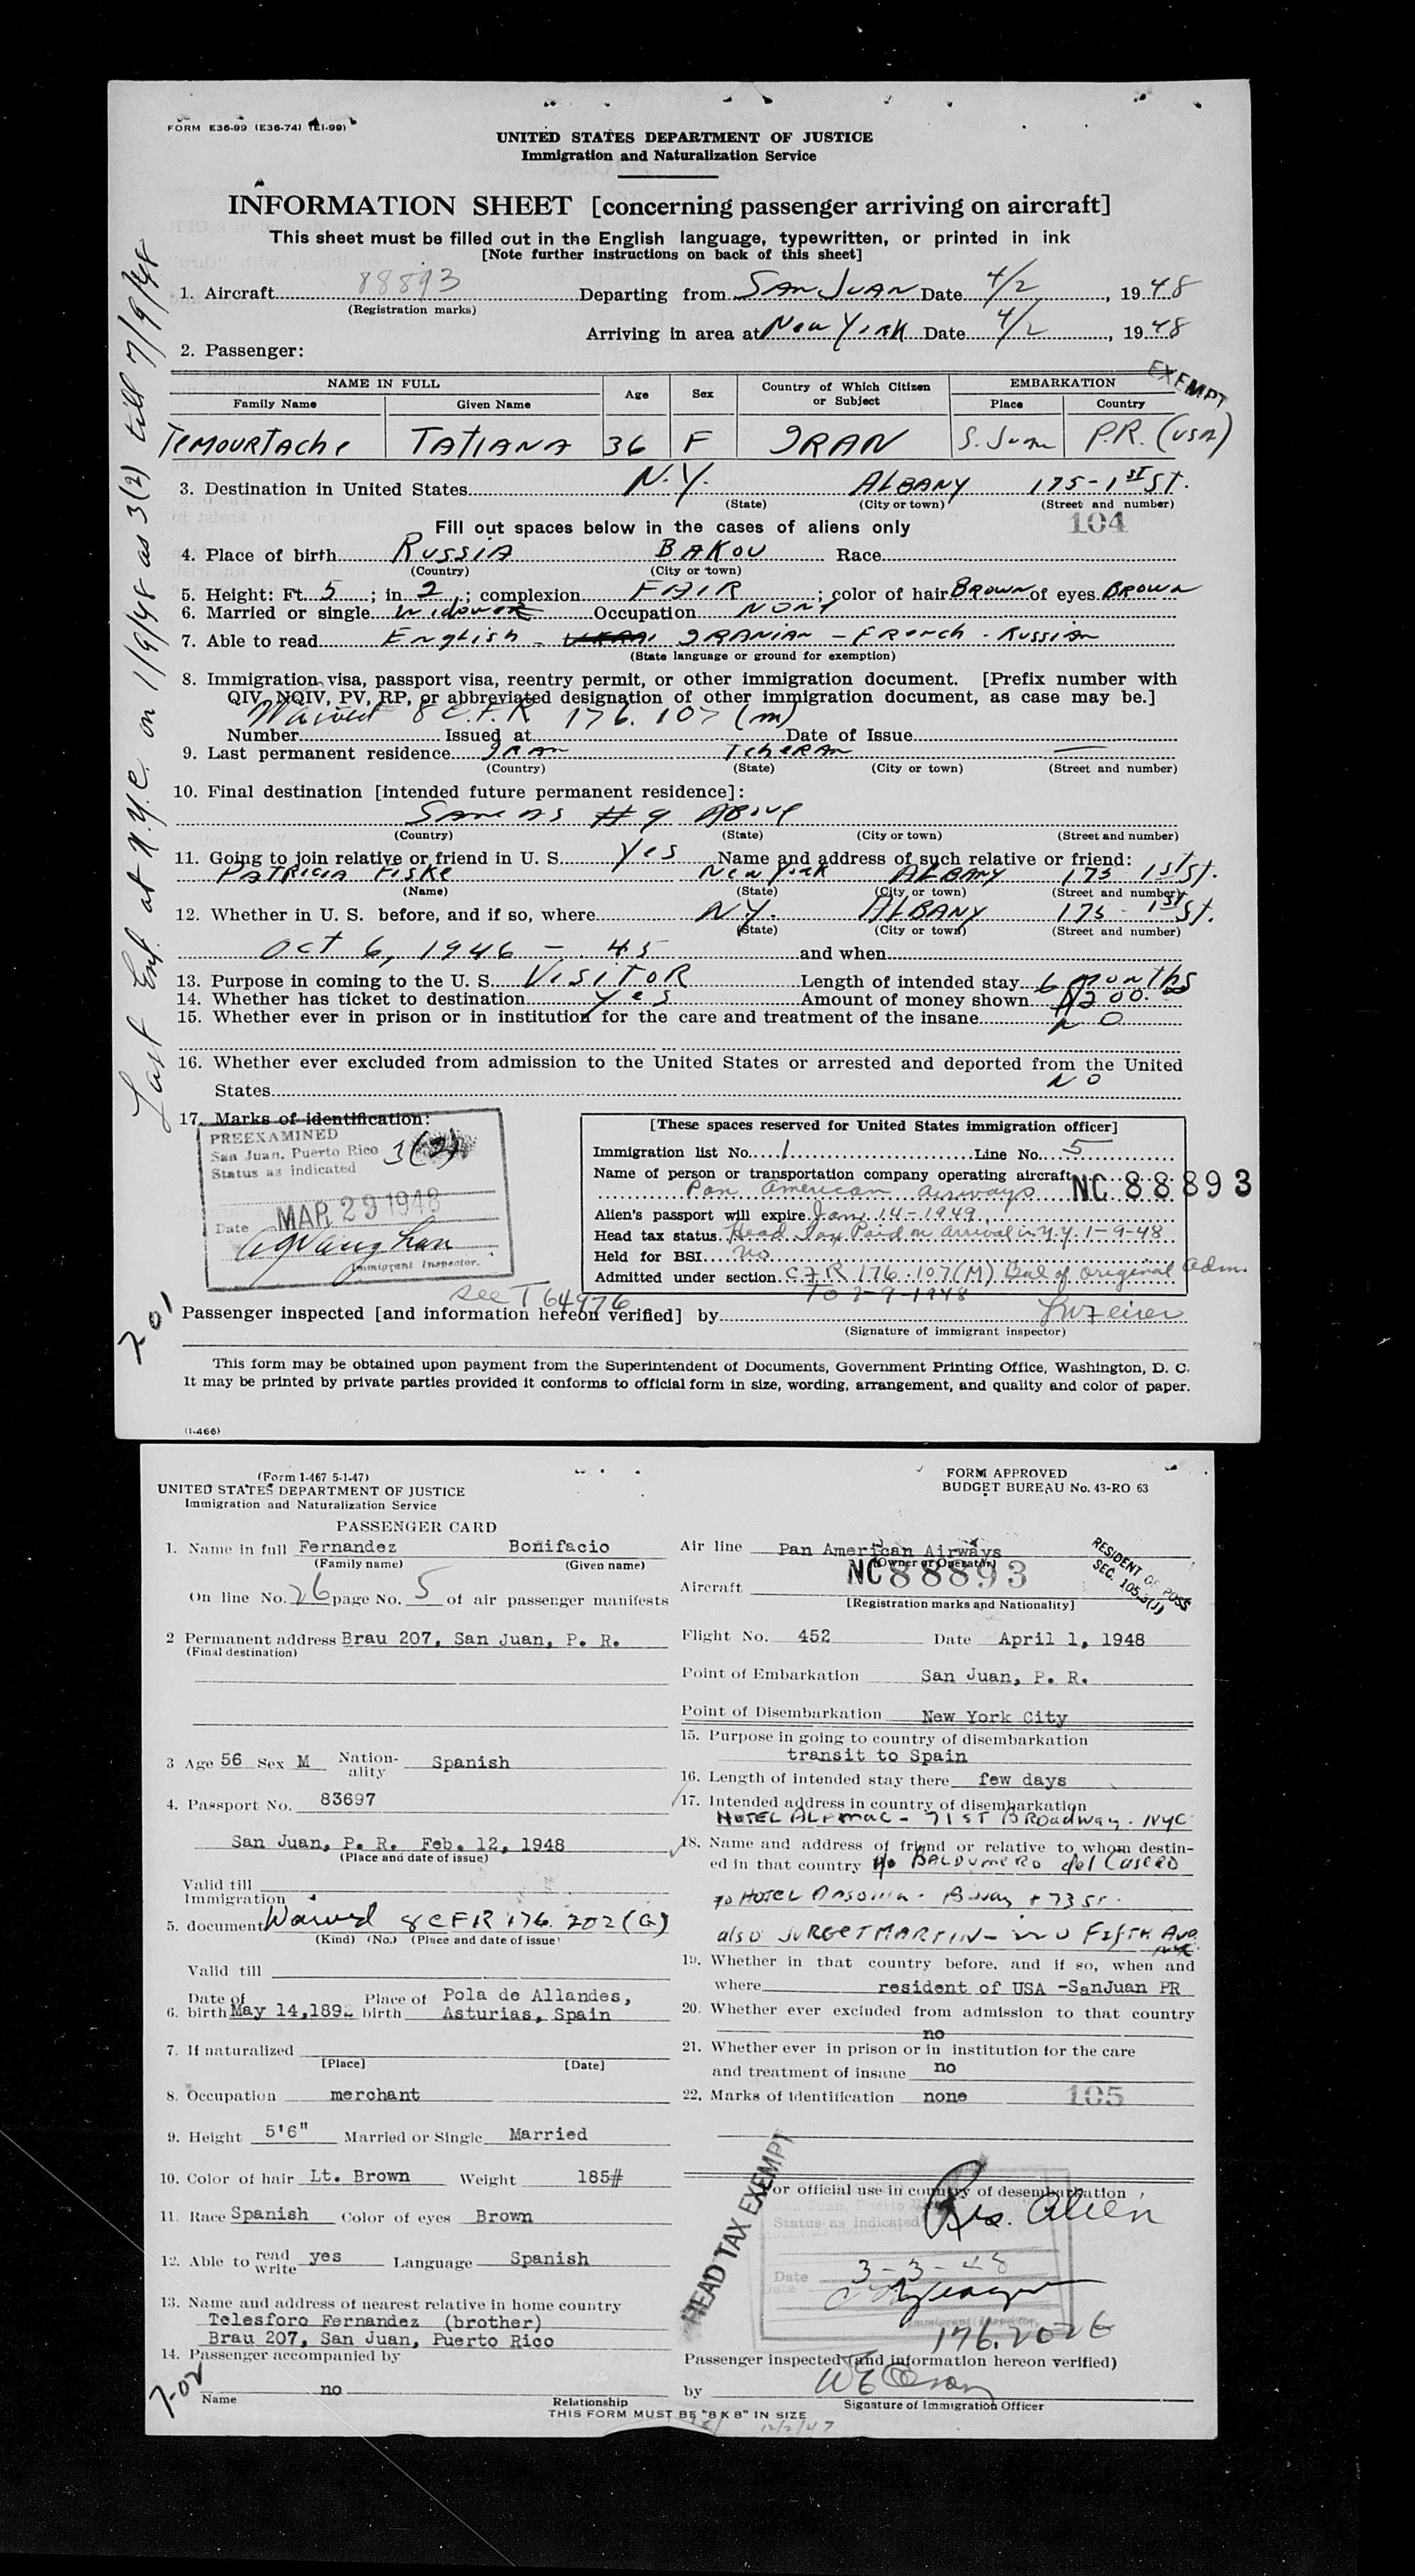 FORM E36-99 (E36-74) (EI-99)
UNITED STATES DEPARTMENT OF JUSTICE
Immigration and Naturalization Service
INFORMATION SHEET [concerning passenger arriving on aircraft]
This sheet must be filled out in the English language, typewritten, or printed in ink
[Note further instructions on back of this sheet]
1. Aircraft 88893 Departing from SAN JUAN Date 4/2, 1948
(Registration marks)
Arriving in area at New York Date 4/2, 1948
2. Passenger:
EXEMPT
NAME IN FULL Age Sex Country of Which Citizen or Subject EMBARKATION
Family Name Given Name Place Country
TEMOURTAChe TATIANA 36 F IRAN S. Juan P.R. (USA)
3. Destination in United States N.Y. ALBANY 175-1st St.
(State) (City or town) (Street and number)
Fill out spaces below in the cases of aliens only 104
4. Place of birth RUSSIA BAKOU Race
(Country) (City or town)
5. Height: Ft. 5; in 2; complexion FAIR; color of hair BROWN of eyes BROWN
6. Married or single Widow Occupation NONE
7. Able to read English - IRANIAN - French - Russian
(State language or ground for exemption)
8. Immigration visa, passport visa, reentry permit, or other immigration document. [Prefix number with
QIV, NQIV, PV, RP, or abbreviated designation of other immigration document, as case may be.]
Waived 8 C.F.R 176.107 (m)
Number Issued at Date of Issue
9. Last permanent residence IRAN TEhERAN —
(Country) (State) (City or town) (Street and number)
10. Final destination [intended future permanent residence]:
Same as #9 Above
(Country) (State) (City or town) (Street and number)
11. Going to join relative or friend in U. S. Yes Name and address of such relative or friend:
PATRICIA FISKE New York ALBANY 175 1st St.
(Name) (State) (City or town) (Street and number)
12. Whether in U. S. before, and if so, where N.Y. ALBANY 175 - 1st St.
(State) (City or town) (Street and number)
Oct 6, 1946 - 45 and when
13. Purpose in coming to the U. S. VISITOR Length of intended stay 6 months
14. Whether has ticket to destination yes Amount of money shown $200.00
15. Whether ever in prison or in institution for the care and treatment of the insane NO
16. Whether ever excluded from admission to the United States or arrested and deported from the United
States NO
17. Marks of identification:
PREEXAMINED
San Juan, Puerto Rico 3(2)
Status as indicated
Date MAR 29 1948
Immigrant Inspector.
[These spaces reserved for United States immigration officer]
Immigration list No. 1 Line No. 5
Name of person or transportation company operating aircraft
Pan American Airways NC 88893
Alien's passport will expire Jan. 14-1949
Head tax status Head Tax Paid on arrival in N.Y. 1-9-48
Held for BSI No
Admitted under section CFR 176.107(M) Bal of original Adm.
To 7-9-1948
see T 64976
Passenger inspected [and information hereon verified] by
(Signature of immigrant inspector)
This form may be obtained upon payment from the Superintendent of Documents, Government Printing Office, Washington, D. C.
It may be printed by private parties provided it conforms to official form in size, wording, arrangement, and quality and color of paper.
(I-466)
Last Ent. at N.Y.C. on 1/9/48 as 3(2) till 7/9/48
201
(Form I-467 5-1-47)
UNITED STATES DEPARTMENT OF JUSTICE
Immigration and Naturalization Service
PASSENGER CARD
1. Name in full Fernandez Bonifacio
(Family name) (Given name)
On line No. 26 page No. 5 of air passenger manifests
2 Permanent address Brau 207, San Juan, P. R.
(Final destination)
3 Age 56 Sex M Nationality Spanish
4. Passport No. 83697
San Juan, P. R. Feb. 12, 1948
(Place and date of issue)
Valid till
Immigration
5. document Waived 8 CFR 176. 202 (G)
(Kind) (No.) (Place and date of issue)
Valid till
6. Date of birth May 14,1892 Place of birth Pola de Allandes,
Asturias, Spain
7. If naturalized
[Place] [Date]
8. Occupation merchant
9. Height 5'6" Married or Single Married
10. Color of hair Lt. Brown Weight 185#
11. Race Spanish Color of eyes Brown
12. Able to read write yes Language Spanish
13. Name and address of nearest relative in home country
Telesforo Fernandez (brother)
Brau 207, San Juan, Puerto Rico
14. Passenger accompanied by
no
Name Relationship
THIS FORM MUST BE "8 X 8" IN SIZE
12/2/47
FORM APPROVED
BUDGET BUREAU No. 43-RO 63
Air line Pan American Airways
(Owner or Operator)
Aircraft NC 88893
[Registration marks and Nationality]
RESIDENT OF POSS
SEC. 105.3(J)
Flight No. 452 Date April 1, 1948
Point of Embarkation San Juan, P. R.
Point of Disembarkation New York City
15. Purpose in going to country of disembarkation
transit to Spain
16. Length of intended stay there few days
17. Intended address in country of disembarkation
HOTEL ALAMAC - 71ST BROadway. NYC
18. Name and address of friend or relative to whom destin-
ed in that country BALDUMERO del CASERO
HOTEL Ansonia - Bway + 73 St.
also FIFTH Ave.
19. Whether in that country before, and if so, when and
where resident of USA -SanJuan PR
20. Whether ever excluded from admission to that country
no
21. Whether ever in prison or in institution for the care
and treatment of insane no
22. Marks of identification none 105
HEAD TAX EXEMPT
For official use in country of desembarkation
San Juan, Puerto Rico
Status as indicated Res. Alien
Date 3-3-48
Immigrant Inspector.
176.202G
Passenger inspected (and information hereon verified)
by
Signature of Immigration Officer